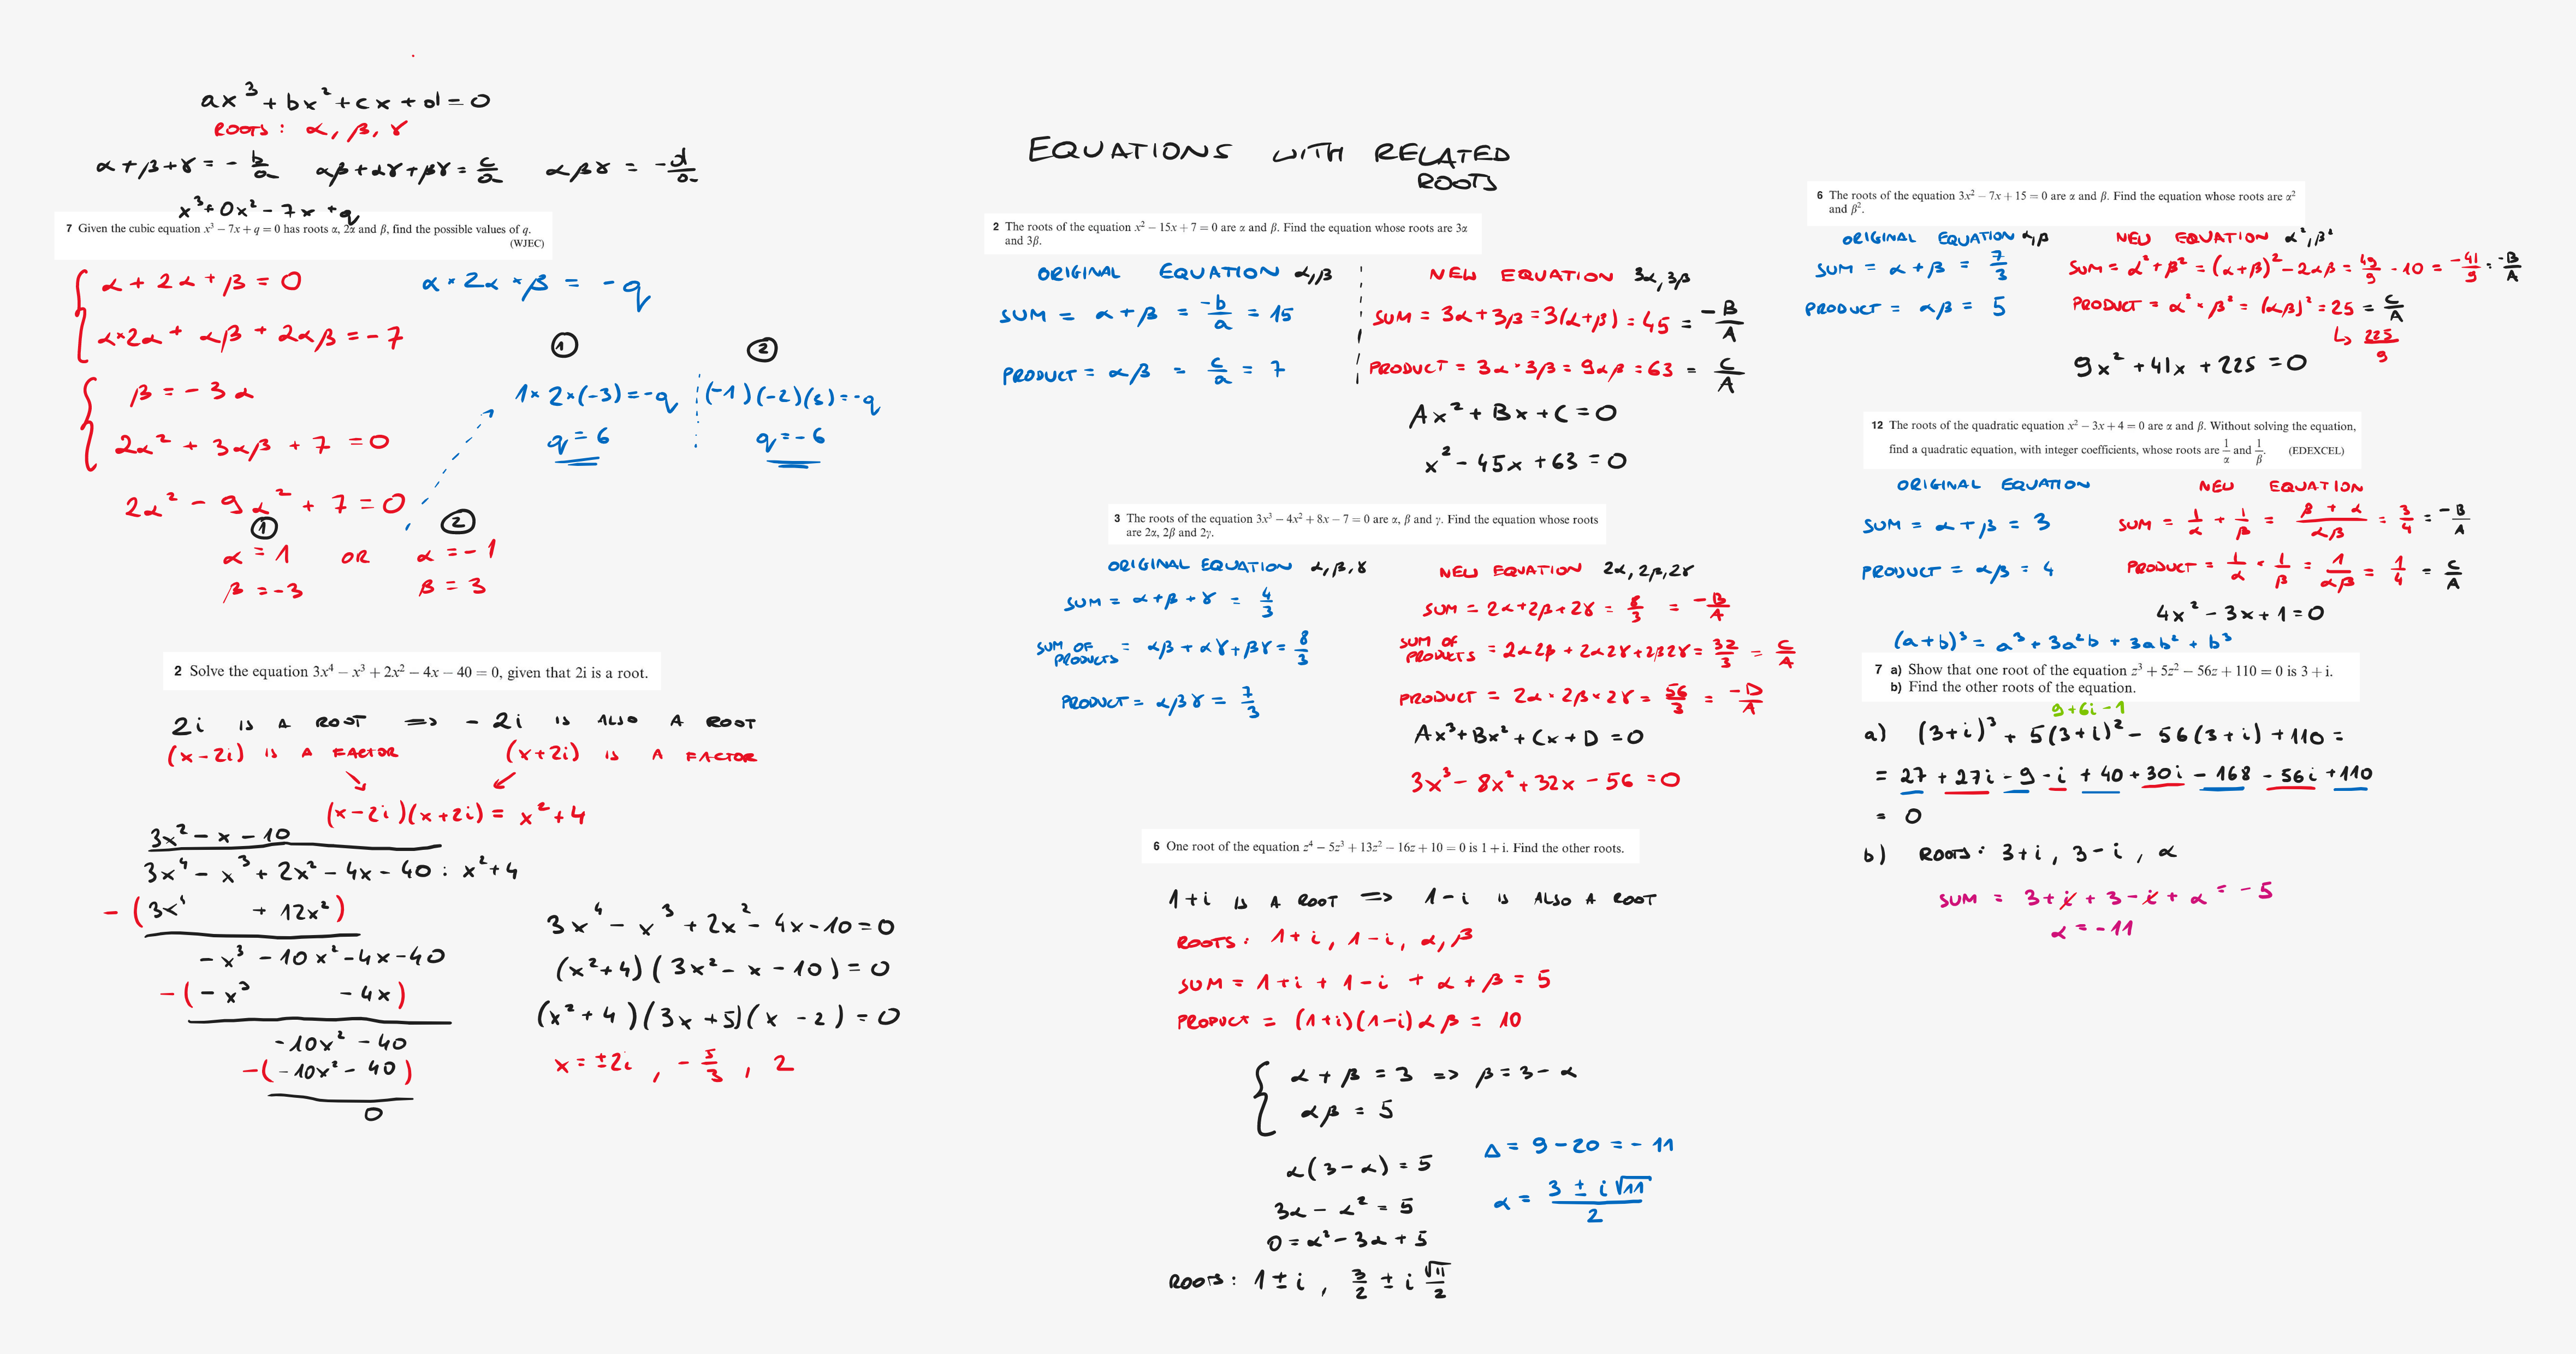 ax³ + bx² + cx + d = 0
ROOTS: α, β, γ
α + β + γ = - b/a   αβ + αγ + βγ = c/a   αβγ = - d/a
x³ + 0x² - 7x + q
7 Given the cubic equation x³ − 7x + q = 0 has roots α, 2α and β, find the possible values of q.
(WJEC)
α + 2α + β = 0
α × 2α + αβ + 2αβ = -7
α × 2α × β = -q
β = -3α
2α² + 3αβ + 7 = 0
2α² - 9α² + 7 = 0
① ②
α = 1 OR α = -1
β = -3   β = 3
① ②
1 × 2 × (-3) = -q   (-1)(-2)(3) = -q
q = 6   q = -6
2 Solve the equation 3x⁴ − x³ + 2x² − 4x − 40 = 0, given that 2i is a root.
2i IS A ROOT => - 2i IS ALSO A ROOT
(x-2i) IS A FACTOR   (x+2i) IS A FACTOR
(x-2i)(x+2i) = x² + 4
3x² - x - 10
3x⁴ - x³ + 2x² - 4x - 40 : x² + 4
-(3x⁴ + 12x²)
- x³ - 10x² - 4x - 40
-(- x³ - 4x)
-10x² - 40
-(-10x² - 40)
0
3x⁴ - x³ + 2x² - 4x - 10 = 0
(x² + 4)(3x² - x - 10) = 0
(x² + 4)(3x + 5)(x - 2) = 0
x = ±2i, - 5/3, 2
EQUATIONS WITH RELATED
ROOTS
2 The roots of the equation x² − 15x + 7 = 0 are α and β. Find the equation whose roots are 3α
and 3β.
ORIGINAL EQUATION α, β
SUM = α + β = -b/a = 15
PRODUCT = αβ = c/a = 7
NEW EQUATION 3α, 3β
SUM = 3α + 3β = 3(α + β) = 45 = -B/A
PRODUCT = 3α · 3β = 9αβ = 63 = C/A
Ax² + Bx + C = 0
x² - 45x + 63 = 0
3 The roots of the equation 3x³ − 4x² + 8x − 7 = 0 are α, β and γ. Find the equation whose roots
are 2α, 2β and 2γ.
ORIGINAL EQUATION α, β, γ
SUM = α + β + γ = 4/3
SUM OF PRODUCTS = αβ + αγ + βγ = 8/3
PRODUCT = αβγ = 7/3
NEW EQUATION 2α, 2β, 2γ
SUM = 2α + 2β + 2γ = 8/3 = -B/A
SUM OF PRODUCTS = 2α2β + 2α2γ + 2β2γ = 32/3 = C/A
PRODUCT = 2α · 2β × 2γ = 56/3 = -D/A
Ax³ + Bx² + Cx + D = 0
3x³ - 8x² + 32x - 56 = 0
6 One root of the equation z⁴ − 5z³ + 13z² − 16z + 10 = 0 is 1 + i. Find the other roots.
1+i IS A ROOT => 1-i IS ALSO A ROOT
ROOTS: 1+i, 1-i, α, β
SUM = 1+i + 1-i + α + β = 5
PRODUCT = (1+i)(1-i)αβ = 10
α + β = 3 => β = 3 - α
αβ = 5
α(3-α) = 5
3α - α² = 5
0 = α² - 3α + 5
Δ = 9 - 20 = -11
α = (3 ± i√11)/2
ROOTS: 1 ± i, 3/2 ± i √11/2
6 The roots of the equation 3x² − 7x + 15 = 0 are α and β. Find the equation whose roots are α²
and β².
ORIGINAL EQUATION α, β
SUM = α + β = 7/3
PRODUCT = αβ = 5
NEW EQUATION α², β²
SUM = α² + β² = (α+β)² - 2αβ = 49/9 - 10 = -41/9 = -B/A
PRODUCT = α² · β² = (αβ)² = 25 = C/A
↳ 225/9
9x² + 41x + 225 = 0
12 The roots of the quadratic equation x² − 3x + 4 = 0 are α and β. Without solving the equation,
find a quadratic equation, with integer coefficients, whose roots are 1/α and 1/β. (EDEXCEL)
ORIGINAL EQUATION
SUM = α + β = 3
PRODUCT = αβ = 4
NEW EQUATION
SUM = 1/α + 1/β = (β + α)/αβ = 3/4 = -B/A
PRODUCT = 1/α · 1/β = 1/αβ = 1/4 = C/A
4x² - 3x + 1 = 0
(a+b)³ = a³ + 3a²b + 3ab² + b³
7 a) Show that one root of the equation z³ + 5z² − 56z + 110 = 0 is 3 + i.
b) Find the other roots of the equation.
9+6i-1
a) (3+i)³ + 5(3+i)² - 56(3+i) + 110 =
= 27 + 27i - 9 - i + 40 + 30i - 168 - 56i + 110
= 0
b) ROOTS: 3+i, 3-i, α
SUM = 3+i + 3-i + α = -5
α = -11